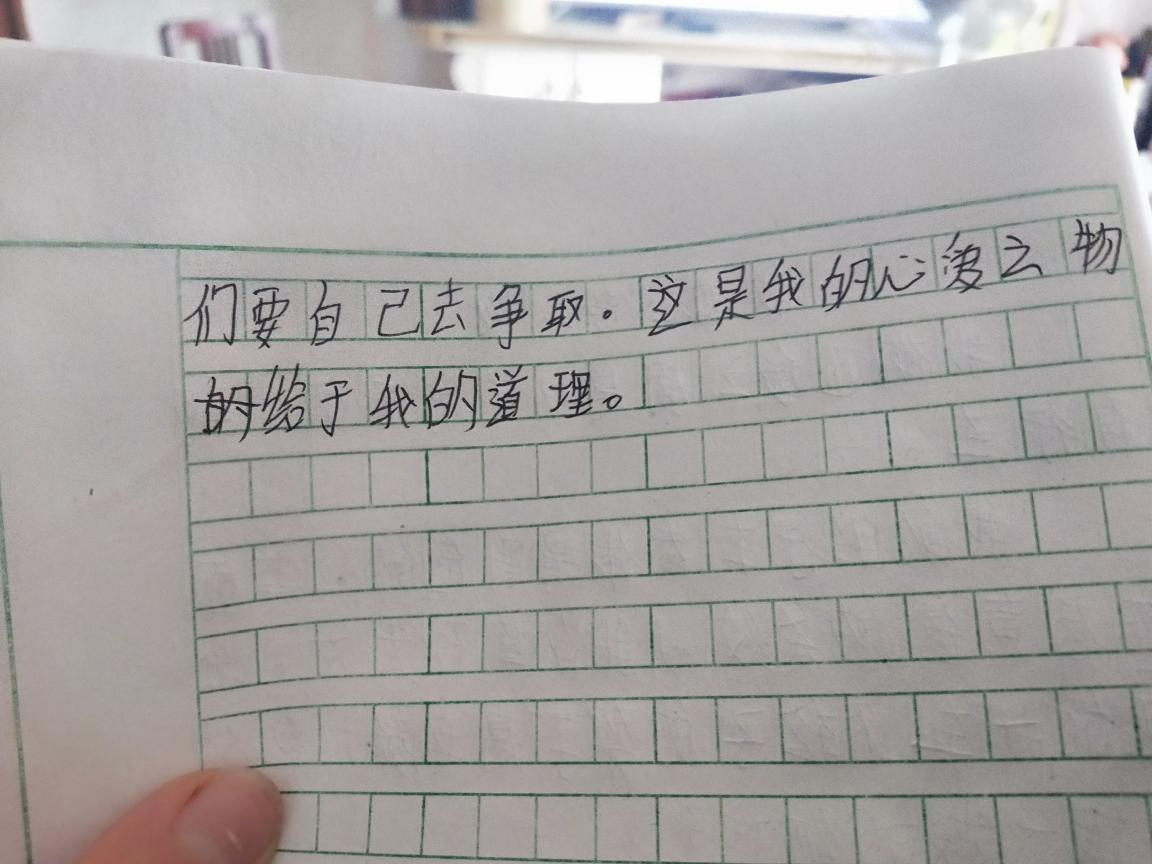 们要自己去争取。这是我的心爱之物
所给于我的道理。